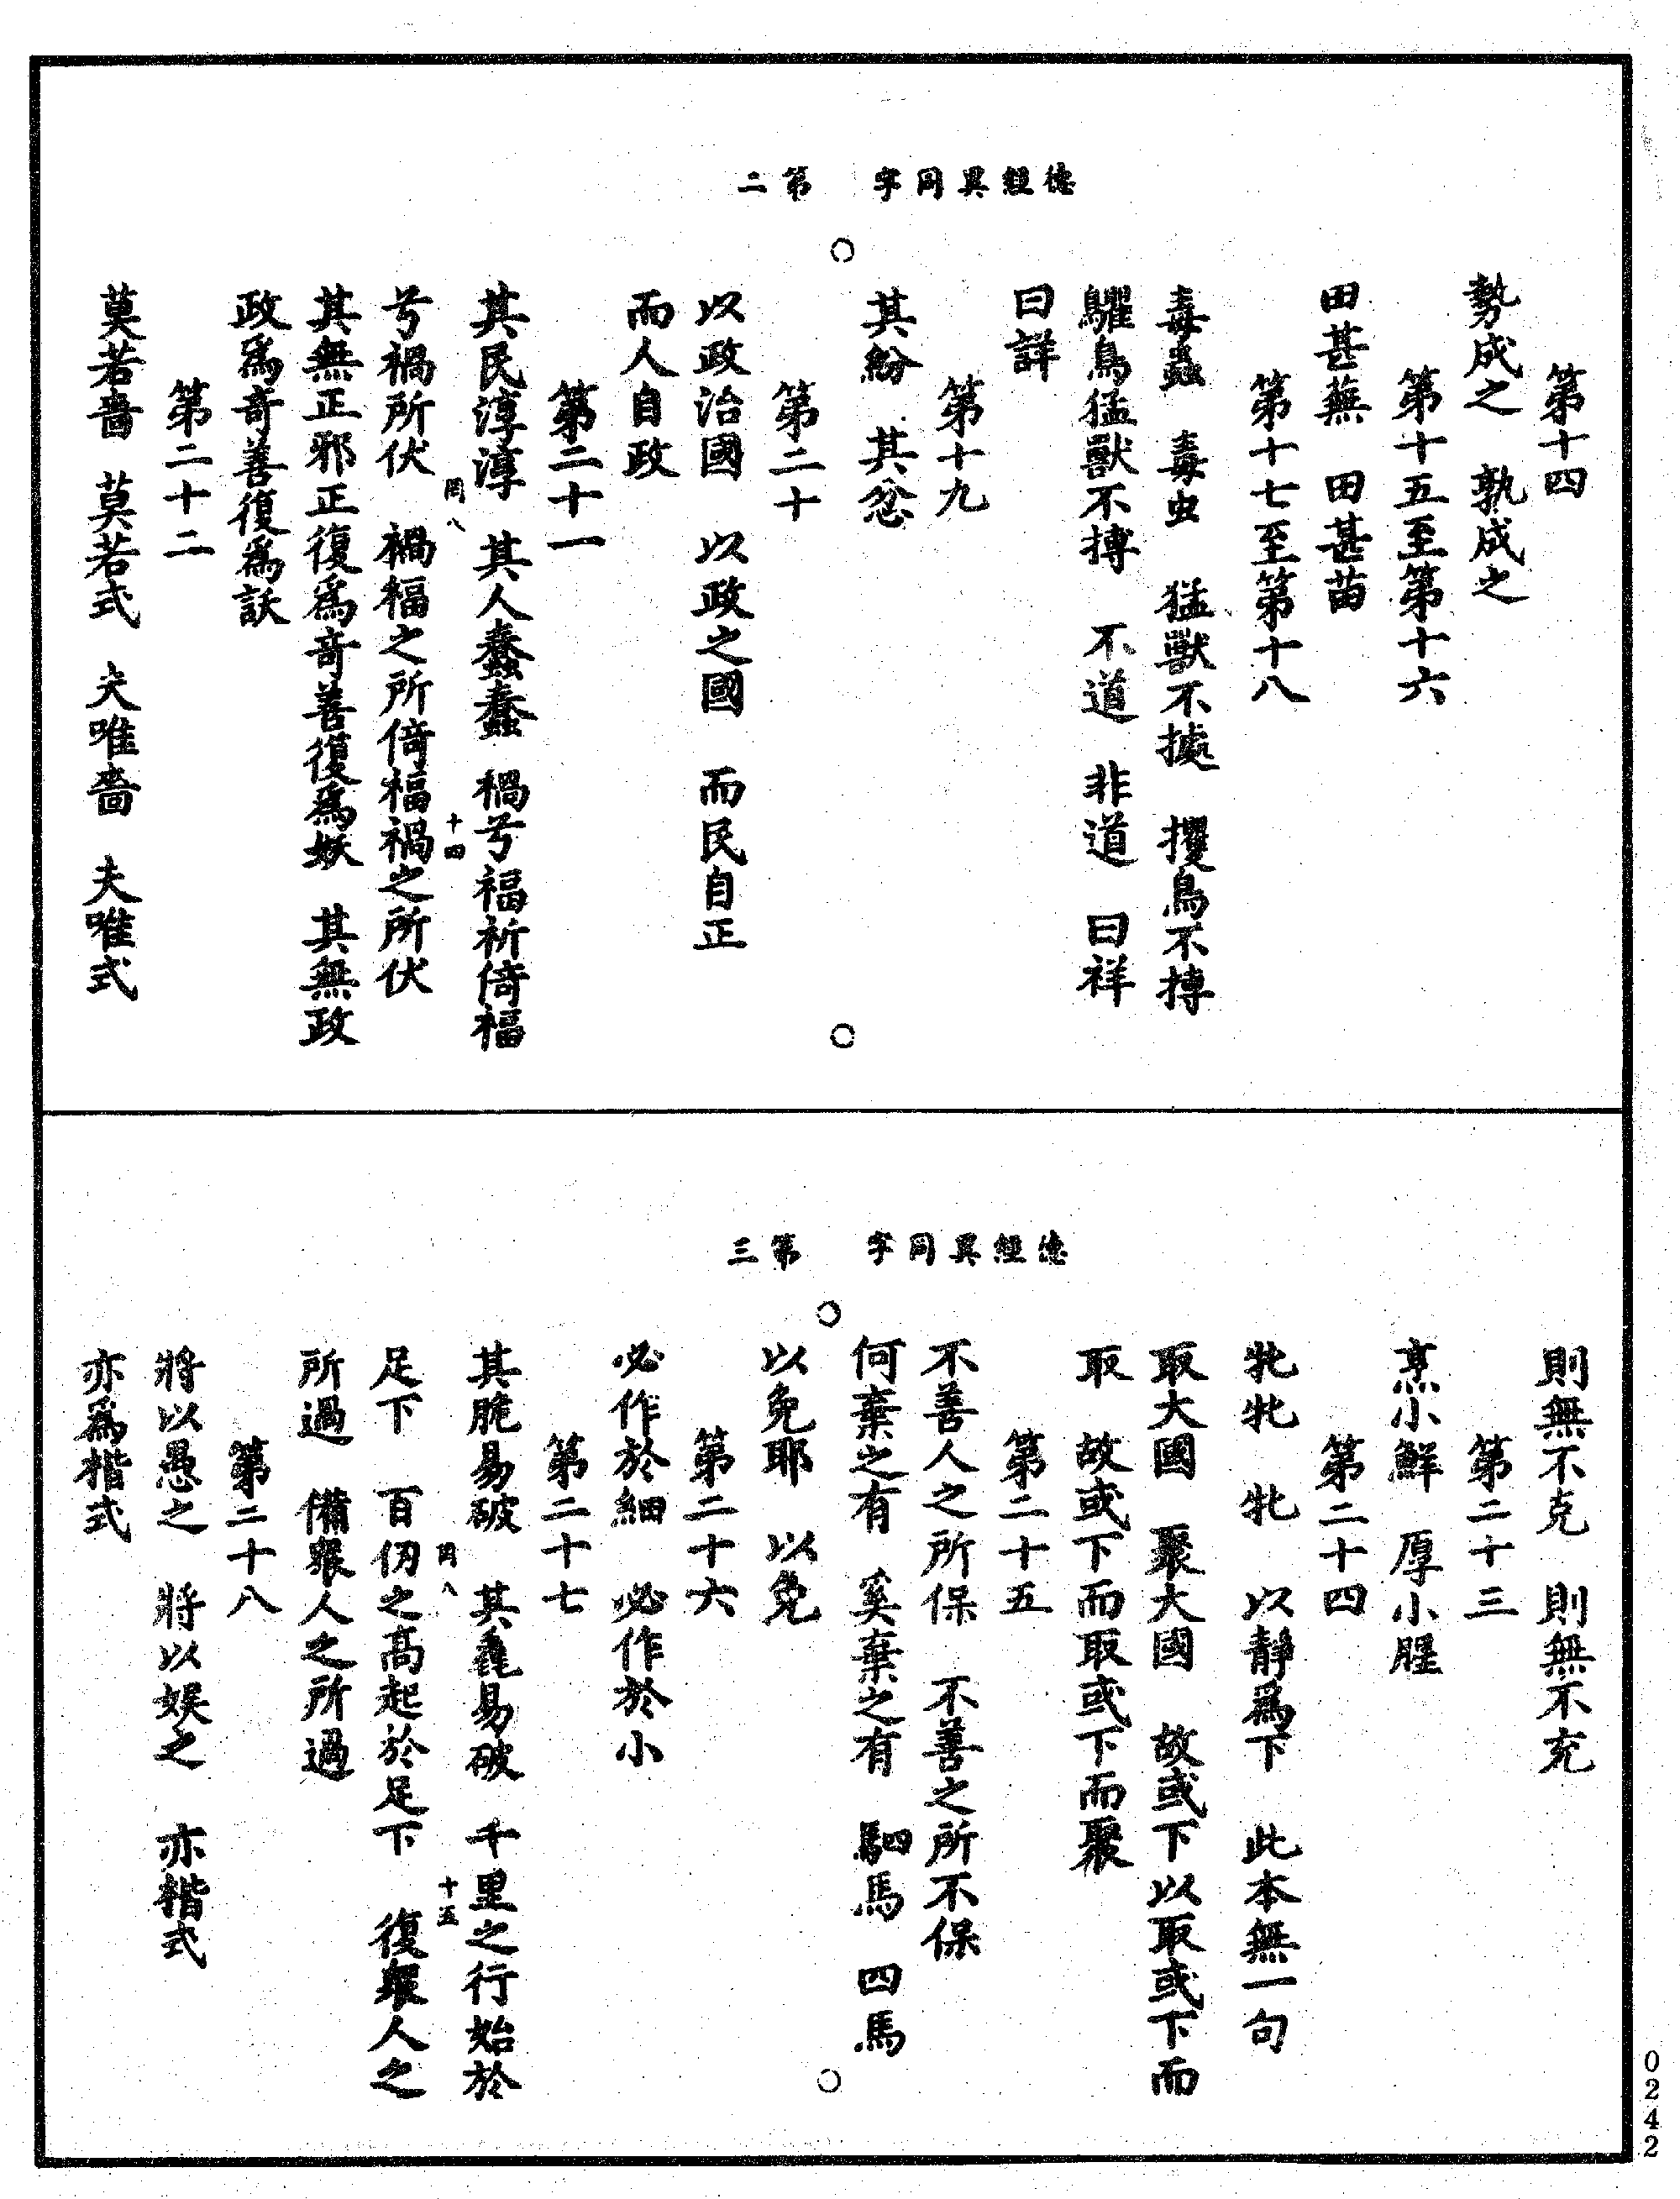 德經異同字　第二
第十四
勢成之　孰成之
第十五至第十六
田甚蕪　田甚苗
第十七至第十八
毒蟲　毒虫　猛獸不據　攫鳥不搏
鸜鳥猛獸不搏　不道　非道　曰祥
曰詳
第十九
其紛　其忿
第二十
以政治國　以政之國　而民自正
而人自政
第二十一
其民淳淳　其人蠢蠢　禍兮福祈倚福
罔八　十四
兮禍所伏　禍福之所倚福禍之所伏
其無正邪正復爲奇善復爲妖　其無政
政爲奇善復爲訞
第二十二
莫若嗇　莫若式　夫唯嗇　夫唯式
德經異同字　第三
則無不克　則無不充
第二十三
烹小鮮　厚小腥
第二十四
牝牝　牝　以靜爲下　此本無一句
取大國　聚大國　故或下以取或下而
取　故或下而取或下而聚
第二十五
不善人之所保　不善之所不保
何棄之有　奚棄之有　駟馬　四馬
以免耶　以免
第二十六
必作於細　必作於小
第二十七
其脆易破　其毳易破　千里之行始於
罔八　十五
足下　百仞之高起於足下　復衆人之
所過　備衆人之所過
第二十八
將以愚之　將以娛之　亦楷式
亦爲楷式
0242